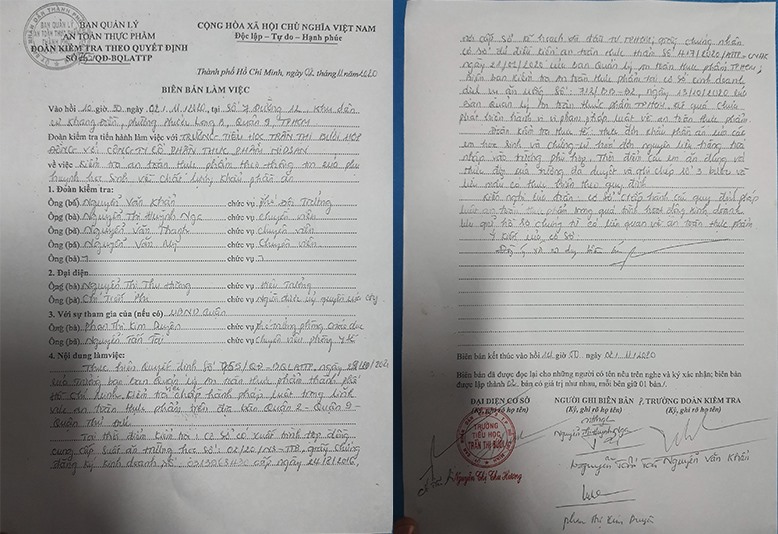 BAN QUẢN LÝ
AN TOÀN THỰC PHẨM
ĐOÀN KIỂM TRA THEO QUYẾT ĐỊNH
SỐ /QĐ-BQLATTP
CỘNG HÒA XÃ HỘI CHỦ NGHĨA VIỆT NAM
Độc lập - Tự do - Hạnh phúc
Thành phố Hồ Chí Minh, ngày 02 tháng 11 năm 2020
BIÊN BẢN LÀM VIỆC
Vào hồi 10 giờ 30, 02/11/2020, tại Số 7 Đường 12, Khu dân
cư Khang Điền, phường Phước Long B, Quận 9, TPHCM
Đoàn kiểm tra tiến hành làm việc với TRƯỜNG TIỂU HỌC TRẦN THỊ BƯỞI HỢP
ĐỒNG VỚI CÔNG TY CỔ PHẦN THỰC PHẨM
về việc Kiểm tra an toàn thực phẩm theo thông tin của phụ
huynh học sinh về chất lượng khẩu phần ăn
1. Đoàn kiểm tra:
Ông (bà) Nguyễn Văn Khải chức vụ Phó Đội Trưởng
Ông (bà) Nguyễn Thị Huỳnh Ngc chức vụ chuyên viên
Ông (bà) Nguyễn Văn chức vụ Chuyên viên
Ông (bà) Nguyễn Văn Mỹ chức vụ Chuyên viên
Ông (bà) chức vụ
2. Đại diện
Ông (bà) Nguyễn Thị Thu Hương chức vụ Hiệu Trưởng
Ông (bà) chức vụ Người được uỷ quyền của cty
3. Với sự tham gia của (nếu có) UBND Quận
Ông (bà) Phan Thị Kim Duyên chức vụ phó trưởng phòng giáo dục
Ông (bà) Nguyễn Tấn Tài chức vụ Chuyên viên phòng y tế
4. Nội dung làm việc:
Thực hiện Quyết định Số 755/QĐ-BQLATTP, ngày
của trưởng ban Ban Quản lý An toàn thực phẩm thành phố
Hồ Chí Minh. Kiểm tra việc chấp hành pháp luật trong lĩnh
vực an toàn thực phẩm trên địa bàn Quận 2 - Quận 9 -
Quận Thủ Đức
Tại thời điểm kiểm tra: Cơ Sở có xuất trình hợp đồng
cung cấp suất ăn trường học số: 02/20/NS-TTB, giấy chứng
đăng ký kinh doanh số cấp ngày 24/2/2016,
nơi cấp: Sở kế hoạch và đầu tư TPHCM; giấy chứng nhận
cơ sở đủ điều kiện an toàn thực phẩm số
ngày của Ban Quản lý An toàn thực phẩm TPHCM;
biên bản kiểm tra an toàn thực phẩm tại cơ sở kinh doanh
dịch vụ ăn uống số: ngày 13/10/2020 của
Ban Quản lý An toàn thực phẩm TPHCM, kết quả chưa
phát hiện hành vi vi phạm pháp luật về an toàn thực phẩm.
Đoàn kiểm tra thực tế thực đơn khẩu phần ăn của các
em học sinh và chứng từ hóa đơn nguyên liệu hàng hóa
nhập vào trường phù hợp. Thời điểm các em ăn đúng với
thực đơn của trường đã duyệt và ghi chép sổ 3 bước và
lưu mẫu có thực hiện theo quy định
Kiến nghị của đoàn: cơ sở chấp hành các quy định pháp
luật an toàn thực phẩm trong quá trình hoạt động kinh doanh
lưu giữ hồ sơ chứng từ có liên quan về an toàn thực phẩm
Ý kiến của cơ sở:
Đồng ý
Biên bản kết thúc vào hồi ngày 02/11/2020
Biên bản đã được đọc lại cho những người có tên nêu trên nghe và ký xác nhận; biên bản
được lập thành bản có giá trị như nhau, mỗi bên giữ 01 bản/.
ĐẠI DIỆN CƠ SỞ
(Ký, ghi rõ họ tên)
NGƯỜI GHI BIÊN BẢN
(Ký, ghi rõ họ tên)
TRƯỞNG ĐOÀN KIỂM TRA
(Ký, ghi rõ họ tên)
TRƯỜNG
TIỂU HỌC
TRẦN THỊ BƯỞI
Nguyễn Thị Thu Hương
Nguyễn Tấn Tài
Nguyễn Văn Khải
Phan Thị Kim Duyên